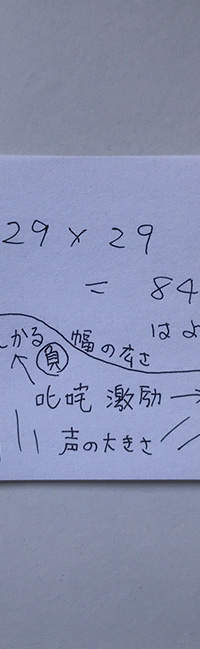 29 × 29
= 84
はよ
かる 負 幅の広さ
叱咤 激励 →
声の大きさ